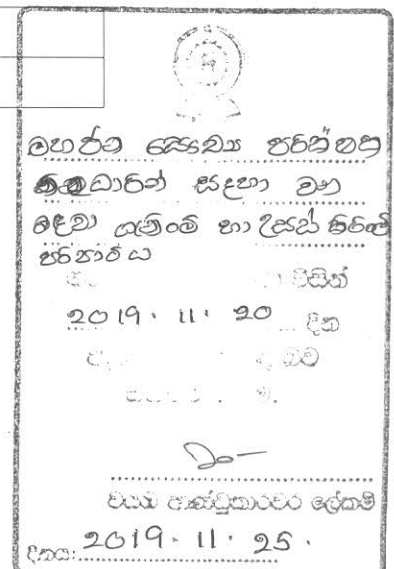 මහජන සෞඛ්‍ය පරීක්ෂක
නිලධාරීන් සඳහා වන
සේවා ගැනීමේ හා උසස් කිරීමේ
පරිපාටිය
විසින්
2019. 11. 20 දින
බව
වයඹ ආණ්ඩුකාරවර ලේකම්
දිනය: 2019. 11. 25.